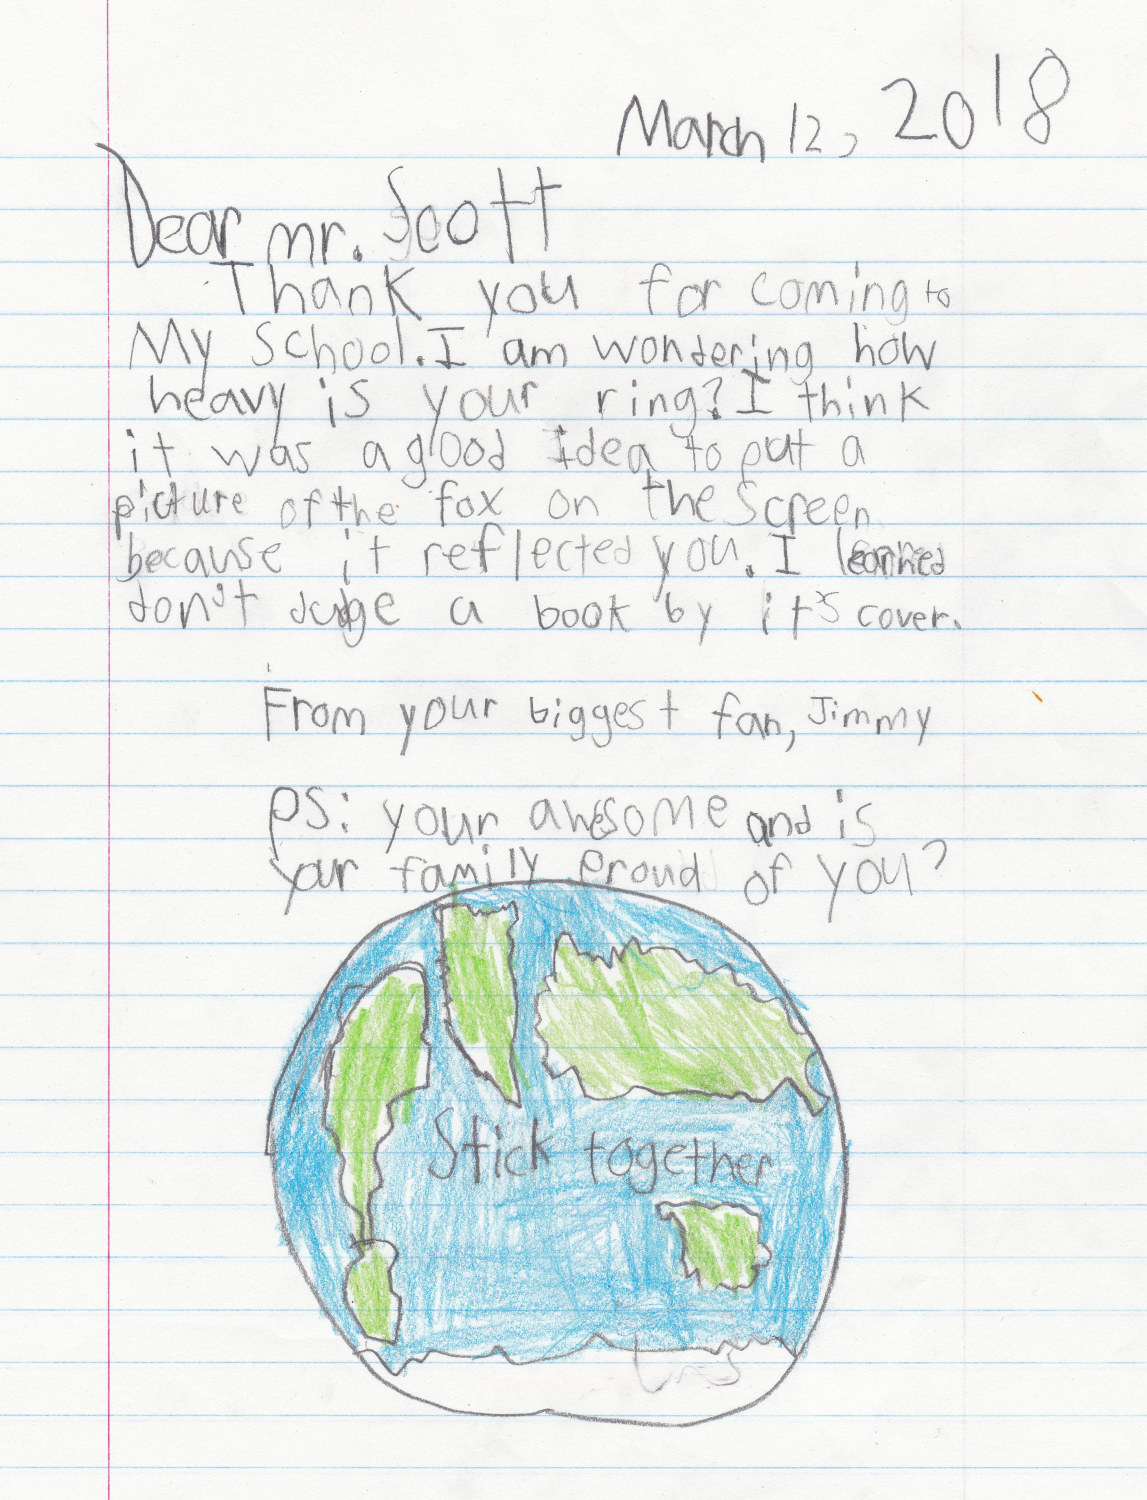 March 12, 2018
Dear mr. Scott
Thank you for coming to
My School. I am wondering how
heavy is your ring? I think
it was a good Idea to put a
picture of the fox on the Screen
because it reflected you. I learned
don't judge a book by it's cover.
From your biggest fan, Jimmy
PS: your awesome and is
your family proud of you?
Stick together